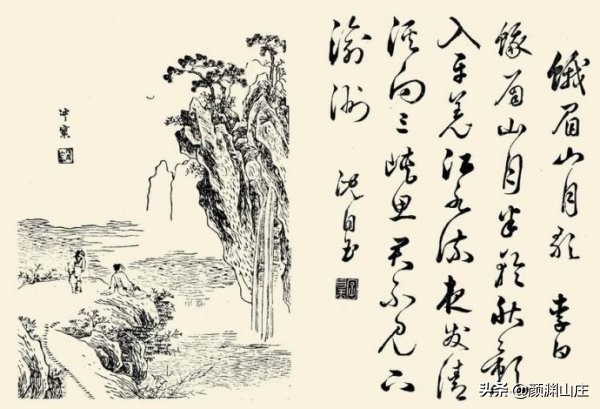 蛾眉山月歌 李白
蛾眉山月半轮秋影
入平羌江水流夜发清
溪向三峡思君不见下
渝州 沈自玉
冲寰
头条 @颜渊山庄